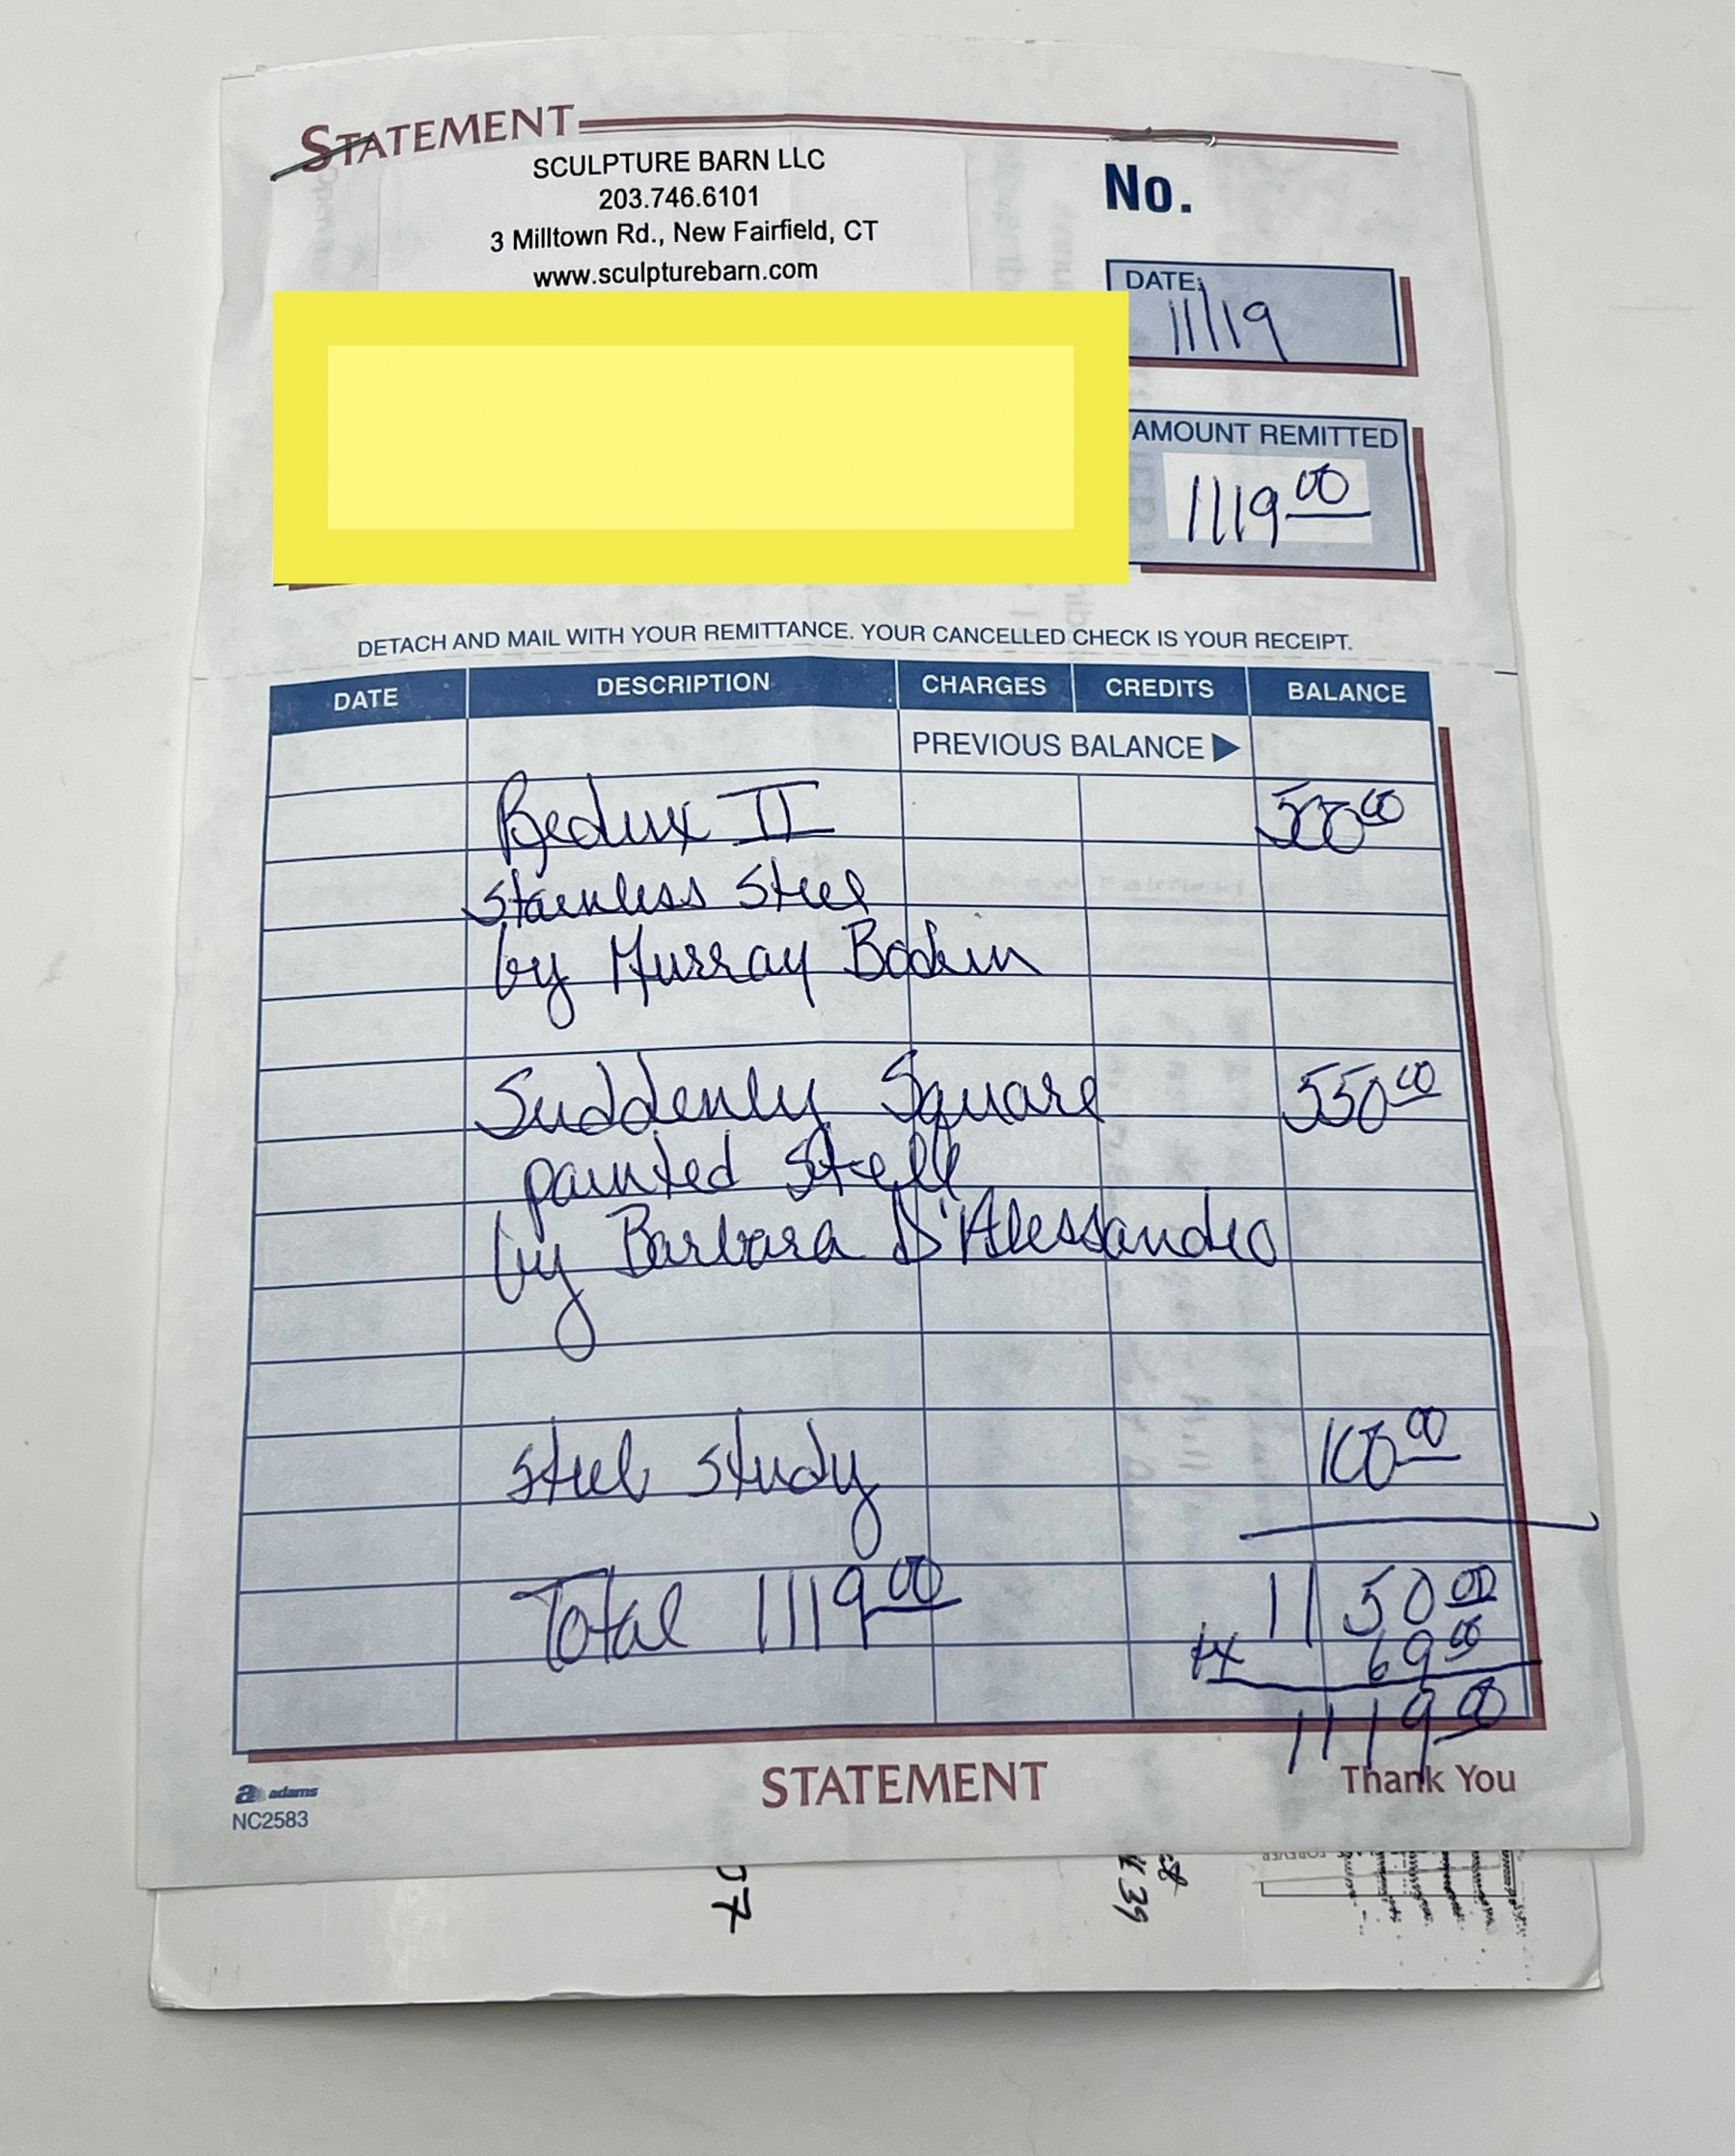 STATEMENT
SCULPTURE BARN LLC
203.746.6101
3 Milltown Rd., New Fairfield, CT
www.sculpturebarn.com
No.
DATE:
11/19
AMOUNT REMITTED
1119.00
DETACH AND MAIL WITH YOUR REMITTANCE. YOUR CANCELLED CHECK IS YOUR RECEIPT.
DATE DESCRIPTION CHARGES CREDITS BALANCE
PREVIOUS BALANCE ▶
Redux II 500.00
Stainless Steel
by Murray Bodin
Suddenly Square 550.00
painted Stell
by Barbara D'Alessandro
Steel Study 100.00
Total 1119.00 1150.00
tx 69.00
1119.00
STATEMENT Thank You
adams
NC2583
07
39
FOREVER